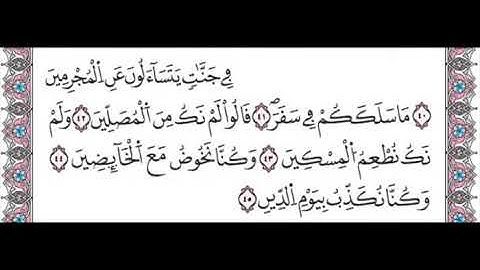 فِے جَنَّٰتٖ يَتَسَآءَلُونَ عَنِ اِ۬لْمُجْرِمِينَ
٤٠ مَا سَلَكَكُمْ فِے سَقَرَۖ ٤١ قَالُواْ لَمْ نَكُ مِنَ اَ۬لْمُصَلِّينَ ٤٢ وَلَمْ
نَكُ نُطْعِمُ اُ۬لْمِسْكِينَ ٤٣ وَكُنَّا نَخُوضُ مَعَ اَ۬لْخَآئِضِينَ ٤٤
وَكُنَّا نُكَذِّبُ بِيَوْمِ اِ۬لدِّينِ ٤٥